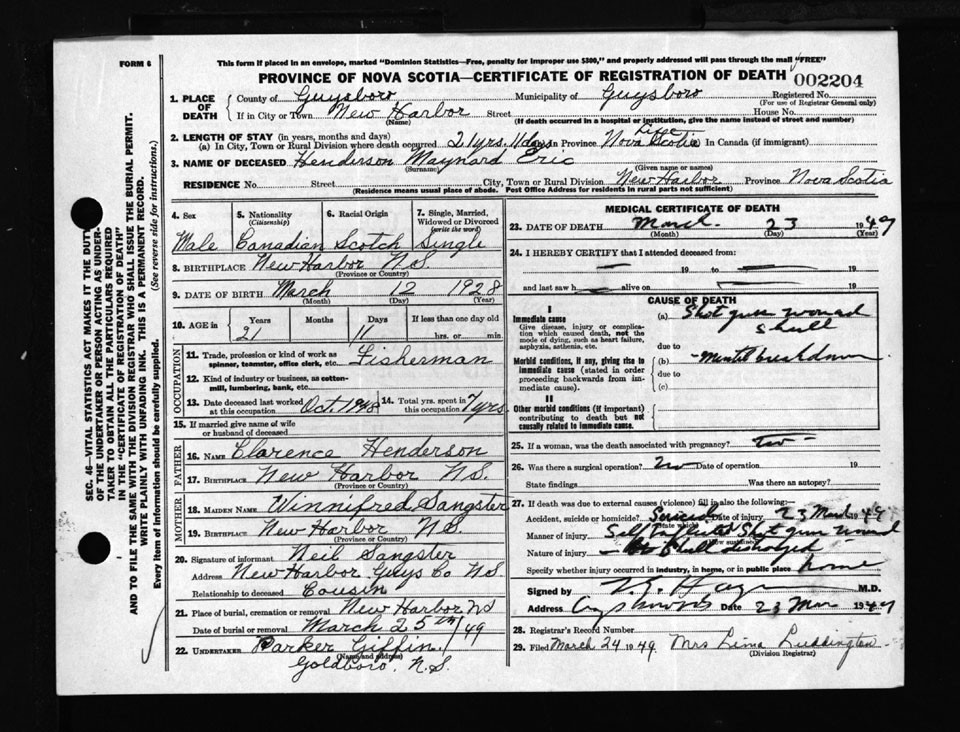 FORM 6
This form if placed in an envelope, marked "Dominion Statistics—Free, penalty for improper use $300," and properly addressed will pass through the mail "FREE"
PROVINCE OF NOVA SCOTIA—CERTIFICATE OF REGISTRATION OF DEATH
002204
1. PLACE OF DEATH
County of Guysboro Municipality of Guysboro Registered No.
(For use of Registrar General only)
If in City or Town New Harbor Street House No.
(Name) (If death occurred in a hospital or institution, give the name instead of street and number)
2. LENGTH OF STAY (in years, months and days) Life
(a) In City, Town or Rural Division where death occurred 21yrs. 11days In Province Nova Scotia In Canada (if immigrant)
3. NAME OF DECEASED Henderson Maynard Eric
(Surname) (Given name or names)
RESIDENCE No. Street City, Town or Rural Division New Harbor Province Nova Scotia
(Residence means usual place of abode. Post Office Address for residents in rural parts not sufficient)
4. Sex
Male
5. Nationality
(Citizenship)
Canadian
6. Racial Origin
Scotch
7. Single, Married, Widowed or Divorced
(write the word)
Single
8. BIRTHPLACE New Harbor N.S.
(Province or Country)
9. DATE OF BIRTH March 12 1928
(Month) (Day) (Year)
10. AGE in Years Months Days If less than one day old
21 11 hrs. or min.
OCCUPATION
11. Trade, profession or kind of work as spinner, teamster, office clerk, etc. Fisherman
12. Kind of industry or business, as cotton-mill, lumbering, bank, etc.
13. Date deceased last worked at this occupation Oct. 1948
14. Total yrs. spent in this occupation 7 yrs
15. If married give name of wife or husband of deceased
FATHER
16. NAME Clarence Henderson
17. BIRTHPLACE New Harbor N.S.
(Province or Country)
MOTHER
18. MAIDEN NAME Winnifred Sangster
19. BIRTHPLACE New Harbor N.S.
(Province or Country)
20. Signature of informant Neil Sangster
Address New Harbor Guys Co N.S.
Relationship to deceased Cousin
21. Place of burial, cremation or removal New Harbor NS
Date of burial or removal March 25th/49
22. UNDERTAKER Parker Giffin
(Name and address)
Goldboro, N.S.
MEDICAL CERTIFICATE OF DEATH
23. DATE OF DEATH March 23 1949
(Month) (Day) (Year)
24. I HEREBY CERTIFY that I attended deceased from:
19 to 19
and last saw h alive on 19
CAUSE OF DEATH
I
Immediate cause
Give disease, injury or complication which caused death, not the mode of dying, such as heart failure, asphyxia, asthenia, etc.
(a) Shot gun wound
Skull
due to
Morbid conditions, if any, giving rise to immediate cause (stated in order proceeding backwards from immediate cause).
(b) Mental breakdown
due to
(c)
II
Other morbid conditions (if important) contributing to death but not causally related to immediate cause.
25. If a woman, was the death associated with pregnancy?
26. Was there a surgical operation? No Date of operation 19
State findings Was there an autopsy?
27. If death was due to external causes (violence) fill in also the following:—
Accident, suicide or homicide? Suicide Date of injury 23 March 1949
Manner of injury Self Inflicted Shot gun wound
Nature of injury Skull
Specify whether injury occurred in industry, in home, or in public place home
Signed by M.D.
Address Date 23 Mar 1949
28. Registrar's Record Number
29. Filed March 24 1949 Mrs Lima Luddington
(Division Registrar)
SEC. 46—VITAL STATISTICS ACT MAKES IT THE DUTY OF THE UNDERTAKER OR PERSON ACTING AS UNDERTAKER TO OBTAIN ALL THE PARTICULARS REQUIRED IN THE "CERTIFICATE OF REGISTRATION OF DEATH" AND TO FILE THE SAME WITH THE DIVISION REGISTRAR WHO SHALL ISSUE THE BURIAL PERMIT.
WRITE PLAINLY WITH UNFADING INK. THIS IS A PERMANENT RECORD.
Every item of information should be carefully supplied. (See reverse side for instructions.)